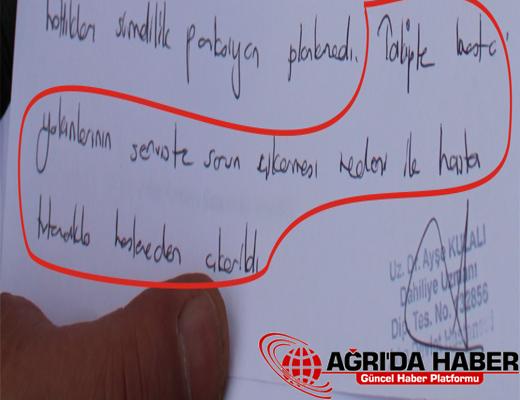 şimdilik planlanmadı. Takipte hasta
yakınlarının serviste sorun çıkarması nedeni ile hasta
hastaneden çıkarıldı
Uz. Dr. Ayşe KULALI
Dahiliye Uzmanı
Dip. Tes. No.
AĞRI'DA HABER
Güncel Haber Platformu